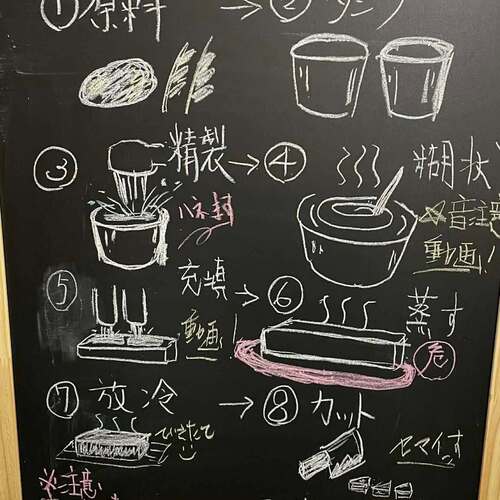 ①原料 → ② タンク
③ 精製 → ④ 糊状
ハネ封
音注意
動画!
⑤ 充填 → ⑥ 蒸す
動画!
危
⑦ 放冷 → ⑧ カット
できたて
セマイす
※注意